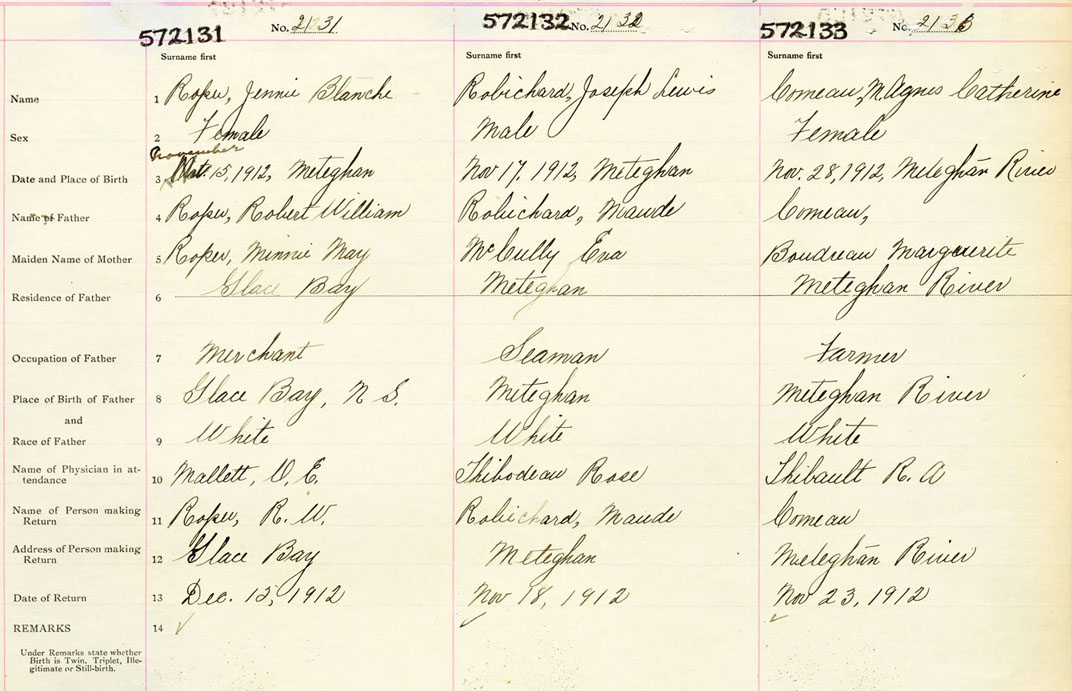 572131 No. 2131 572132 No. 2132 572133 No. 2133
Surname first Surname first Surname first
Name 1 Roper, Jennie Blanche Robichard, Joseph Lewis Comeau, M. Agnes Catherine
Sex 2 Female Male Female
November
Date and Place of Birth 3 15, 1912, Meteghan Nov 17, 1912, Meteghan Nov. 28, 1912, Meteghan River
Name of Father 4 Roper, Robert William Robichard, Maude Comeau,
Maiden Name of Mother 5 Roper, Minnie May McCully Eva Boudreau Marguerite
Residence of Father 6 Glace Bay Meteghan Meteghan River
Occupation of Father 7 Merchant Seaman Farmer
Place of Birth of Father 8 Glace Bay, N S. Meteghan Meteghan River
and
Race of Father 9 White White White
Name of Physician in at-
tendance 10 Mallett, V. E. Thibodeau Rose Thibault R. A
Name of Person making
Return 11 Roper, R. W. Robichard, Maude Comeau
Address of Person making
Return 12 Glace Bay Meteghan Meteghan River
Date of Return 13 Dec. 15, 1912 Nov 18, 1912 Nov 23, 1912
REMARKS 14
Under Remarks state whether
Birth is Twin, Triplet, Ille-
gitimate or Still-birth.